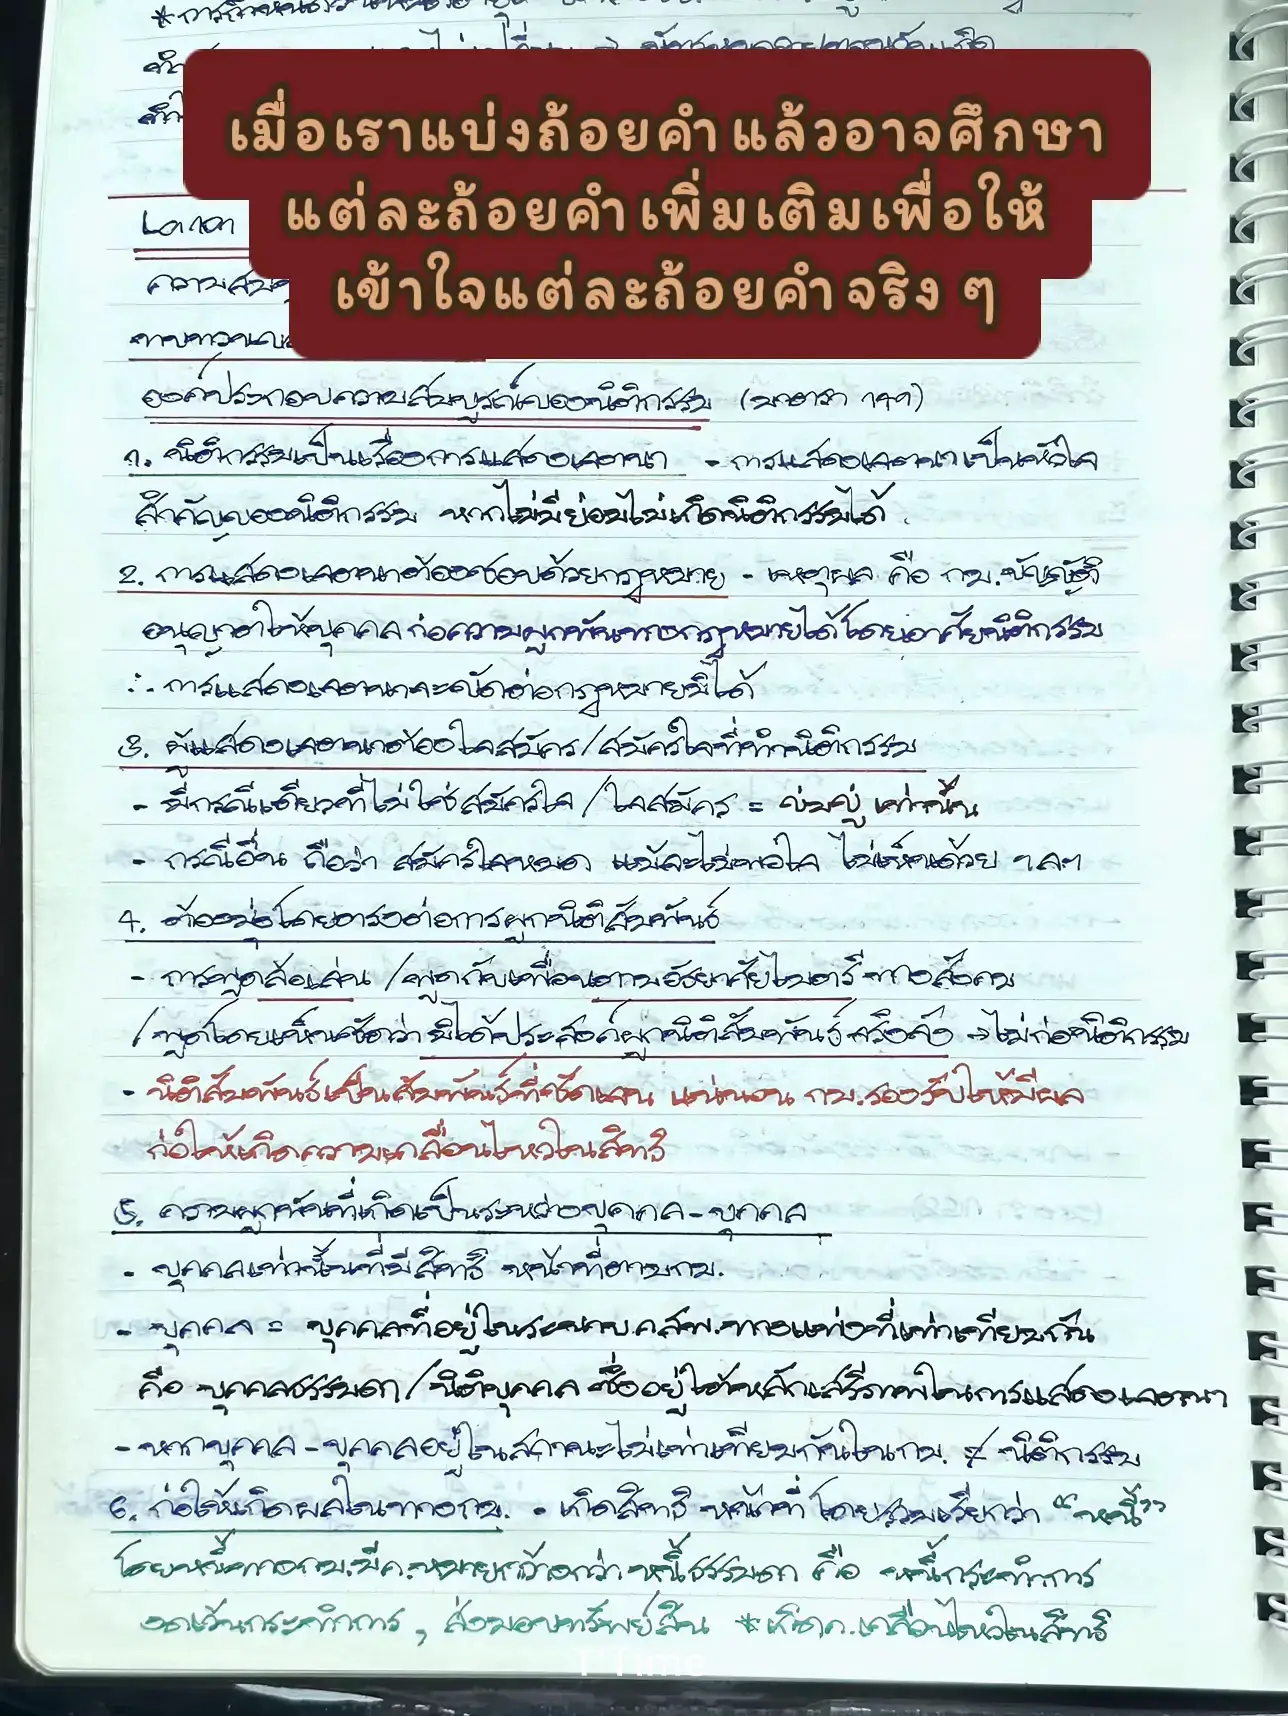 เมื่อเราแบ่งถ้อยคำแล้วอาจศึกษา
แต่ละถ้อยคำเพิ่มเติมเพื่อให้
เข้าใจแต่ละถ้อยคำจริง ๆ
องค์ประกอบความสมบูรณ์ของนิติกรรม (มาตรา 149)
1. นิติกรรมเป็นเรื่องการแสดงเจตนา - การแสดงเจตนาเป็นหัวใจ
สำคัญของนิติกรรม หากไม่มีย่อมไม่เกิดนิติกรรมได้
2. การแสดงเจตนาต้องชอบด้วยกฎหมาย - เหตุผล คือ กม.บัญญัติ
อนุญาตให้บุคคลก่อความผูกพันทางกฎหมายได้โดยอาศัยนิติกรรม
∴ การแสดงเจตนาจะขัดต่อกฎหมายมิได้
3. ผู้แสดงเจตนาต้องใจสมัคร/สมัครใจที่ทำนิติกรรม
- มีกรณีเดียวที่ไม่ใช่สมัครใจ/ใจสมัคร = ข่มขู่ เท่านั้น
- กรณีอื่น ถือว่า สมัครใจหมด แม้จะไม่พอใจ ไม่เห็นด้วย ฯลฯ
4. ต้องมุ่งโดยตรงต่อการผูกนิติสัมพันธ์
- การพูดล้อเล่น /พูดกับเพื่อนตามอัธยาศัยไมตรีทางสังคม
/พูดโดยเห็นชัดว่ามิได้ประสงค์ผูกนิติสัมพันธ์จริงจัง → ไม่ก่อนิติกรรม
- นิติสัมพันธ์เป็นสัมพันธ์ที่ชัดเจน แน่นอน กม.รองรับให้มีผล
ก่อให้เกิดความเคลื่อนไหวในสิทธิ
5. ความผูกพันที่เกิดเป็นระหว่างบุคคล-บุคคล
- บุคคลเท่านั้นที่มีสิทธิ หน้าที่ตามกม.
- บุคคล = บุคคลที่อยู่ในระนาบ ค.สพ.ทางแพ่งที่เท่าเทียมกัน
คือ บุคคลธรรมดา/นิติบุคคล ซึ่งอยู่ใต้หลักเสรีภาพในการแสดงเจตนา
- หากบุคคล-บุคคลอยู่ในสถานะไม่เท่าเทียมกันในกม. ≠ นิติกรรม
6. ก่อให้เกิดผลในทางกม. - เกิดสิทธิ หน้าที่ โดยรวมเรียกว่า "หนี้"
โดยหนี้ทางกม.มีค.หมายกว้างกว่าหนี้ธรรมดา คือ หนี้กระทำการ
งดเว้นกระทำการ, ส่งมอบทรัพย์สิน *เกิดค.เคลื่อนไหวในสิทธิ
T Time